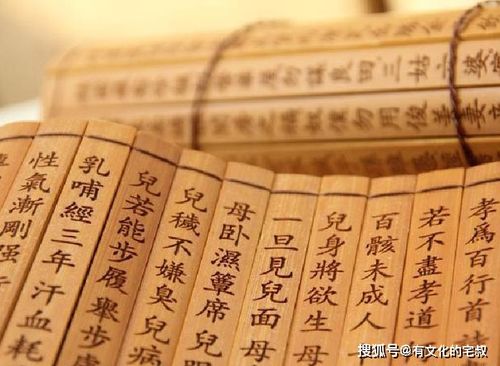 勿謀良田三姑六婆
奴僕勿用俊美妻
孝為百行首
若不盡孝道
百骸未成人
兒身將欲生母
一旦見兒面母
母卧濕簟席兒
兒穢不嫌臭兒病
兒若能步履舉步
乳哺經三年汗血耗
性氣漸剛强
搜狐号@有文化的宅叔